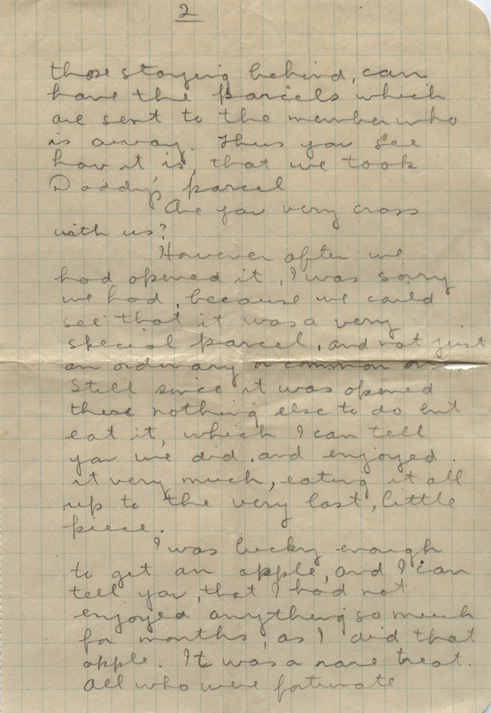 2
those staying behind, can
have the parcels which
are sent to the member who
is away. Thus you see
how it is, that we took
Daddy's parcel
Are you very cross
with us?
However after we
had opened it, I was sorry
we had, because we could
see that it was a very
special parcel, and not just
an ordinary or common one
Still since it was opened
there nothing else to do but
eat it, which I can tell
you we did, and enjoyed
it very much, eating it all
up to the very last, little
piece.
I was lucky enough
to get an apple, and I can
tell you, that I had not
enjoyed anything so much
for months, as I did that
apple. It was a rare treat.
All who were fortunate